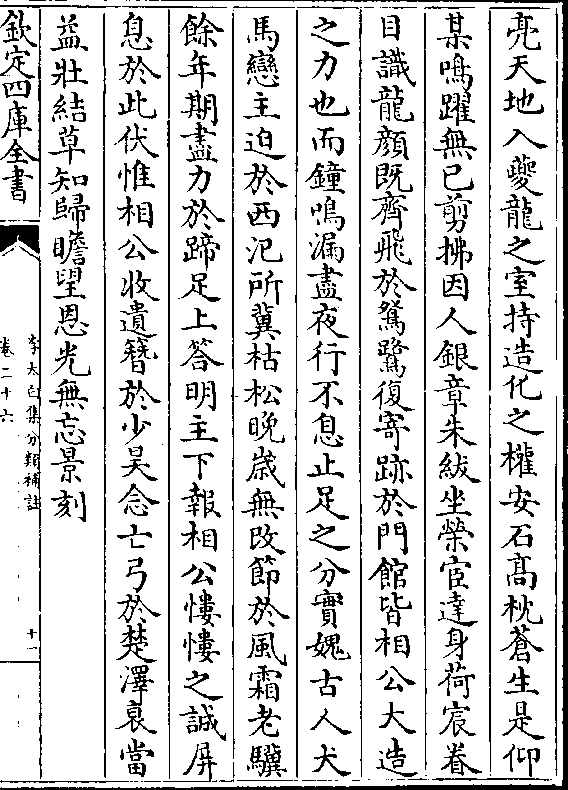 亮天地入夔龍之室持造化之權安石髙枕蒼生是仰
某鳴躍無已剪拂因人銀章朱紱坐榮宦達身荷宸眷
目識龍顔既齊飛於鵷鷺復寄跡於門館皆相公大造
之力也而鐘鳴漏盡夜行不息止足之分實媿古人犬
馬戀主迫於西汜所冀枯松晚歳無改節於風霜老驥
餘年期盡力於蹄足上答明主下報相公慺慺之誠屏
息於此伏惟相公收遺簪於少昊念亡弓於楚澤衰當
益壯結草知歸瞻望恩光無忘景刻
欽定四庫全書
李太白集分類補註
卷二十六
十一